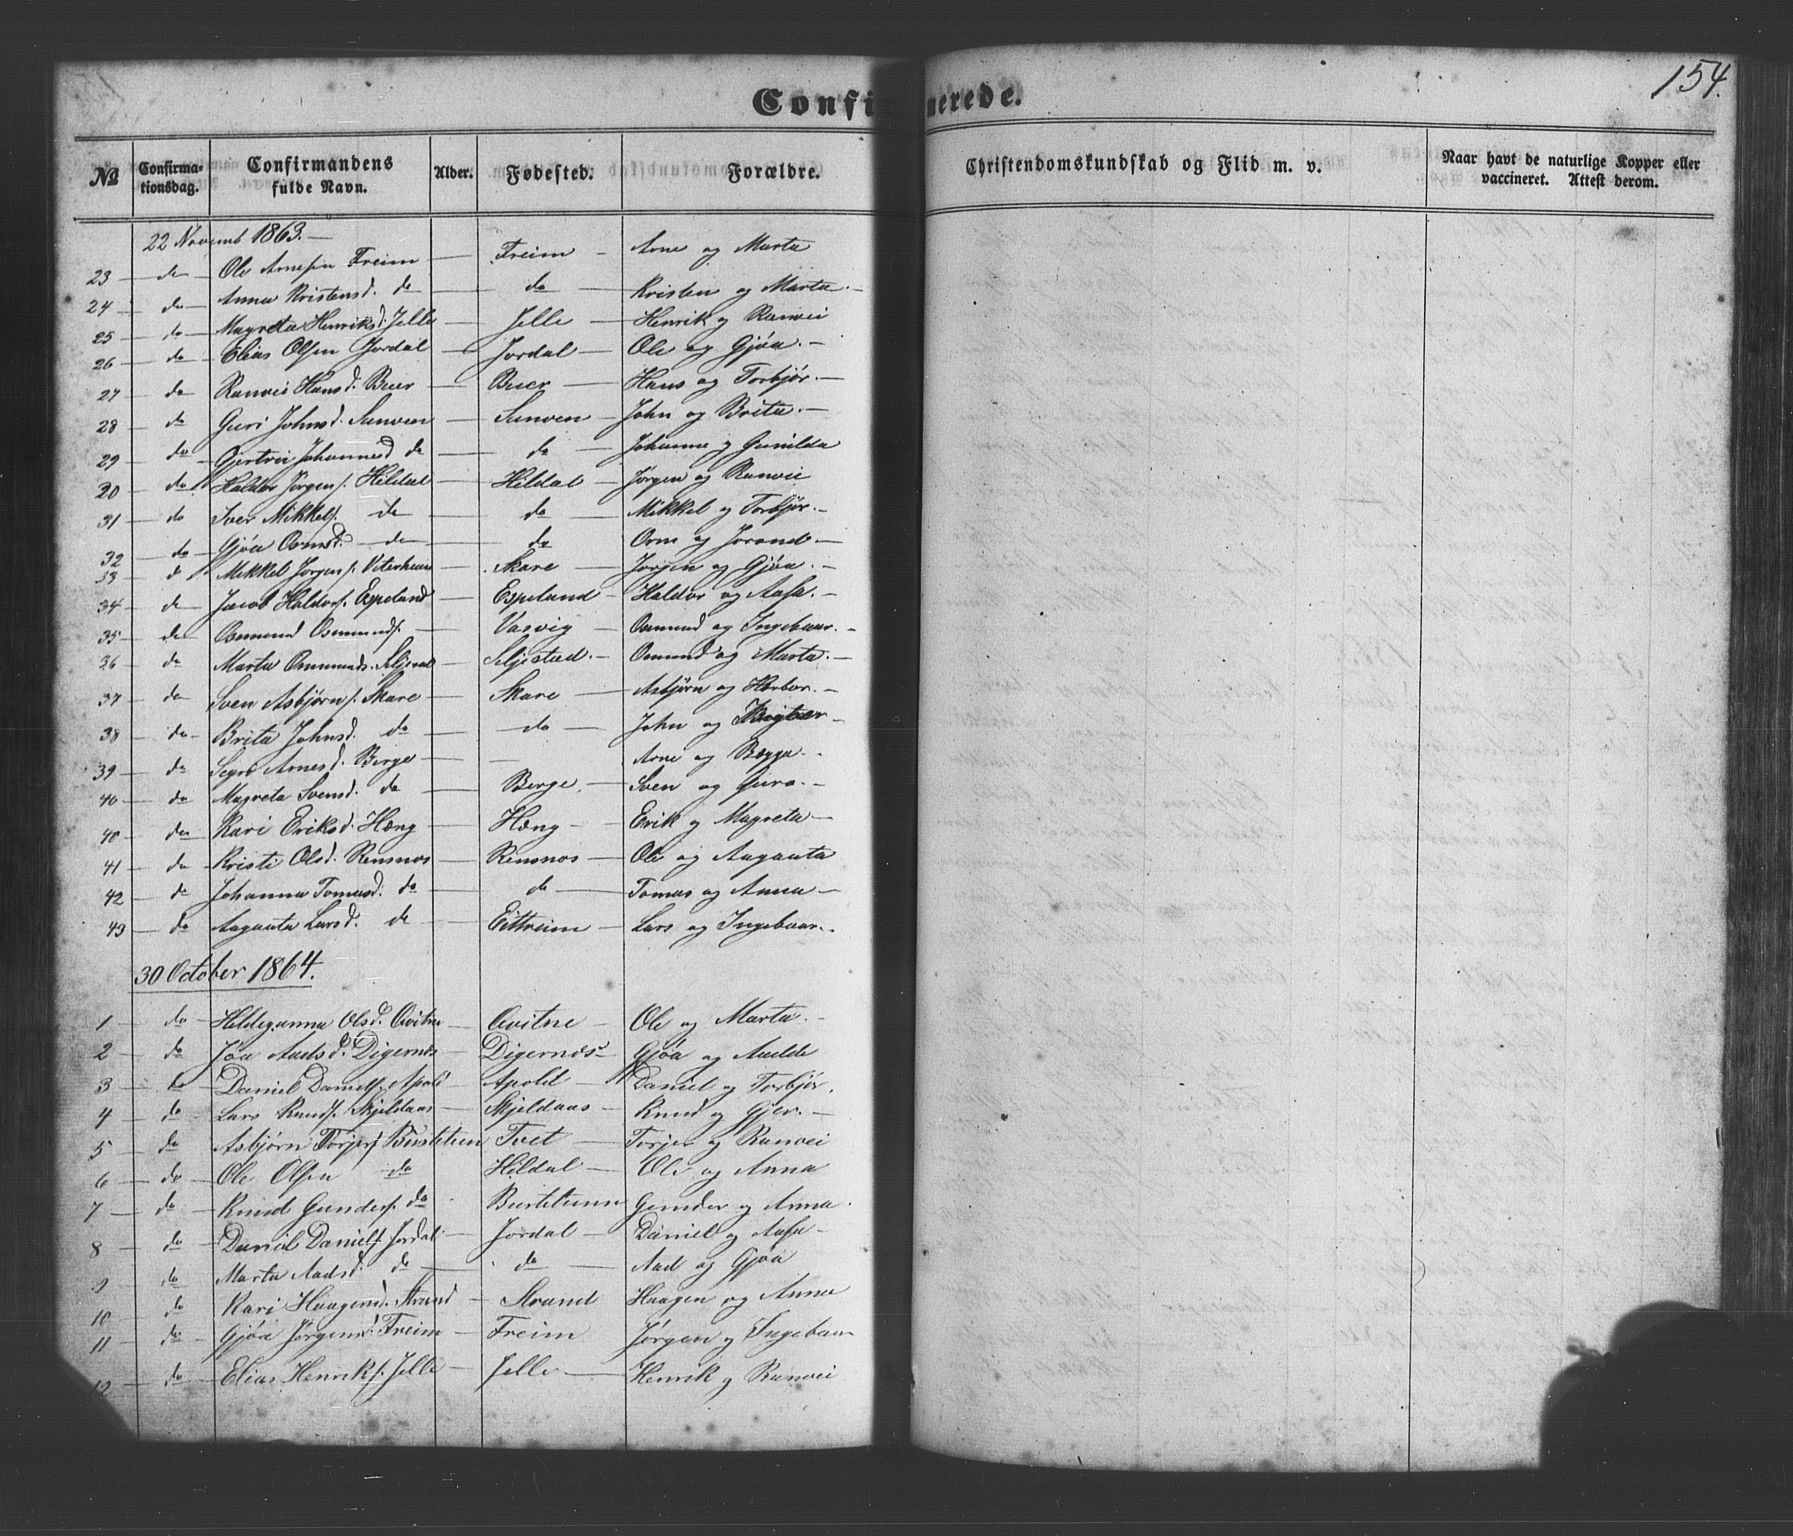 Confi nerede.
154.
No
Confirma-tionsdag.
Confirmandens fulde Navn.
Alder.
Fødested.
Forældre.
Christendomskundskab og Flid m. v.
Naar havt de naturlige Kopper eller vaccineret. Attest derom.
22 Novemb 1863.—
23 — do — Ole Arnesen Freim — Freim — Arne og Marta
24 — do — Anna Kristensd. do — do — Kristen og Marta.—
25 — do — Magreta Henriksd. Jelle — Jelle — Henrik og Ranvei
26 — do — Elias Olsen Jordal — Jordal — Ole og Gjøa.—
27 — do — Ranvei Hansd. Buer — Buer — Hans og Torbjør.—
28 — do — Guri Johnsd. Sanven — Sanven — John og Brita.—
29 — do — Gjertru Johannesd do — do — Johanne og Gunilda
20 — do Haldor Jørgens. Hildal — Hildal — Jørgen og Ranvei
31 — do Iver Mikkels. do — do — Mikkel og Torbjør.—
32 — do — Gjøa Ormsd. do — do — Orm og Jorand.—
33 — d Mikkel Jørgens. — Skare — Jørgen og Gjøa.—
34 — do — Jacob Haldors. Espeland — Espeland — Haldor og Aasa.—
35 — do Osmund Osmunds. — Vasvig — Osmund og Ingebaar.—
36 — do Marta Osmunds. — Seljestad.— Osmund og Marta.—
37 — do Sven Asbjørns. Skare — Skare — Asbjørn og Herbor.—
38 — do — Brita Johnsd. do — do — John og
39 — do — Arnesd. Berge — Arne og Bægga.—
40 — do — Magreta Svensd. do — Berge.— Sven og Guro.—
40 — do — Kari Eriksd. Hæng — Hæng — Erik og Magreta —
41 — do — Kristi Olsd. Rensnos — Rensnos — Ole og Aagaata
42 — do — Johanna Tomasd. do — do — Tomas og Anna —
43 — do — Aagaata Larsd. do — Eittreim — Lars og Ingebaar.—
30 October 1864.
1 — do — Hildegunna Olsd. Qvitne — Qvitne — Ole og Marta.—
2 — do — Jøa Aadsd. Digernæs — Digernæs — Gjøa og Aadde
3 — do — Daniel Daniels. Apold — Apold — Daniel og Torbjør.
4 — do — Lars Knuds. Skjeldaas — Skjeldaas — Knud og Gjer.—
5 — do — Asbjørn Torjes. Bustetun Tvet — Torjer og Ranvei
6 — do — Ole Olsen do Hildal — Ole og Anna
7 — do — Knud Gunders. do Bustetunn Gunder og Anna.
8 — do — Daniel Daniels. Jordal — Jordal — Daniel og Aasa —
9 do Marta Aadsd. do — do — Aad og Gjøa
10 do Kari Haagensd. Strand — Strand Haagen og Anna
11 — do — Gjøa Jørgensd. Freim — Freim — Jørgen og Ingebaar
12 — do — Elias Henriks. Jelle — Jelle — Henrik og Ranvei